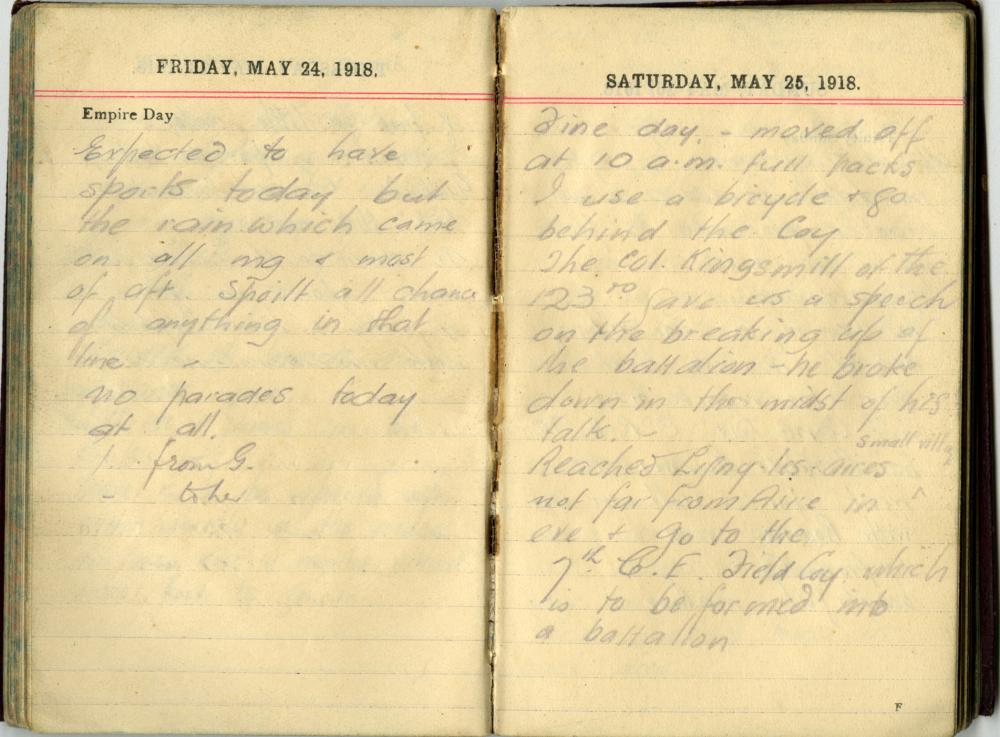 FRIDAY, MAY 24, 1918.
Empire Day
Expected to have
sports today but
the rain which came
on all mg & most
of aft. Spoilt all chance
of anything in that
line -
no parades today
at all.
1. from G.
- to her
SATURDAY, MAY 25, 1918.
Fine day. - moved off
at 10 a.m. full packs
I use a bicycle & go
behind the Coy
The Col. Kingsmill of the
123rd gave us a speech
on the breaking up of
the battalion - he broke
down in the midst of his
talk. -
small villag
Reached Ligny-les-aires
not far from Aire in ^
eve + go to the
7th C.E. Field Coy. which
is to be formed into
a battalion
F